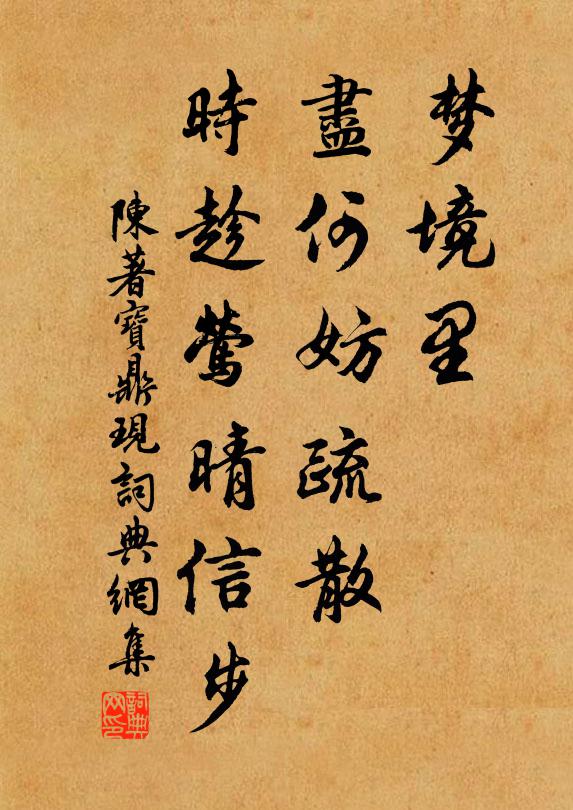 梦境里
盡何妨疏散
時趁莺晴信步
陳著寶鼎現詞典網集
詞典网印